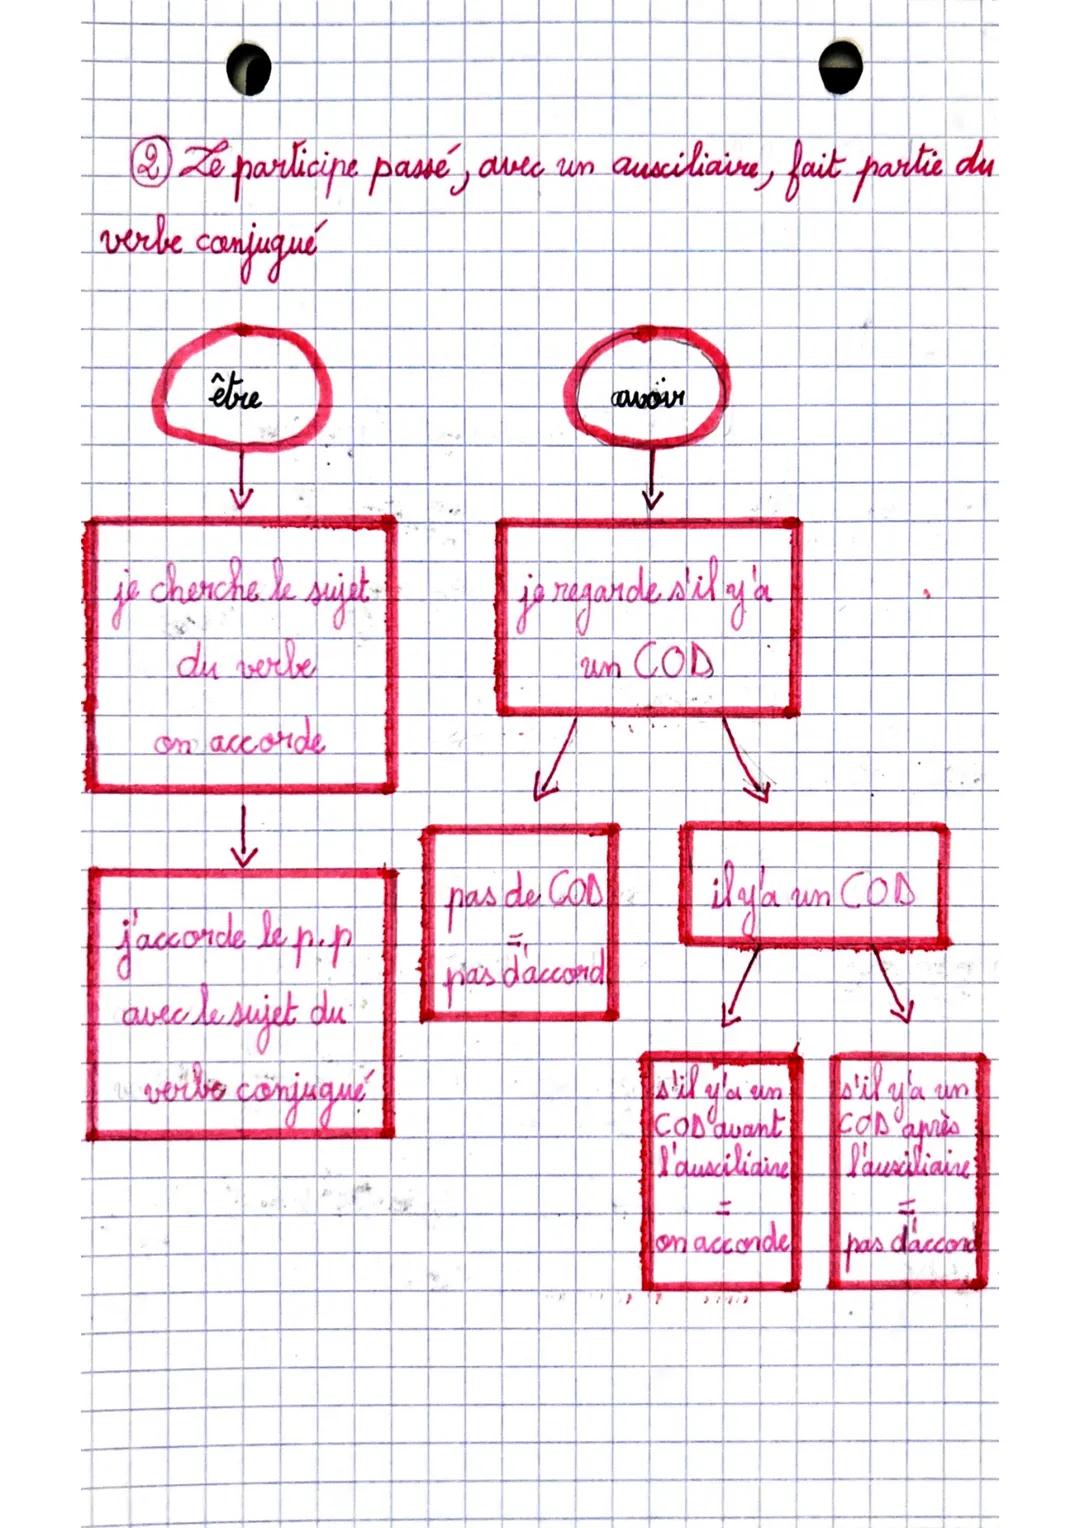 ② Le participe passé, avec un ausciliaire, fait partie du
verbe conjugué
être
avoir
je cherche le sujet
du verbe
on accorde
je regarde s'il y'a
un COD
j'accorde le p.p
avec le sujet du
verbe conjugué
pas de COD
=
pas d'accord
il y'a un COD
s'il y'a un
COD avant
l'ausciliaire
=
on accorde
s'il y'a un
COD après
l'ausciliaire
=
pas d'accord